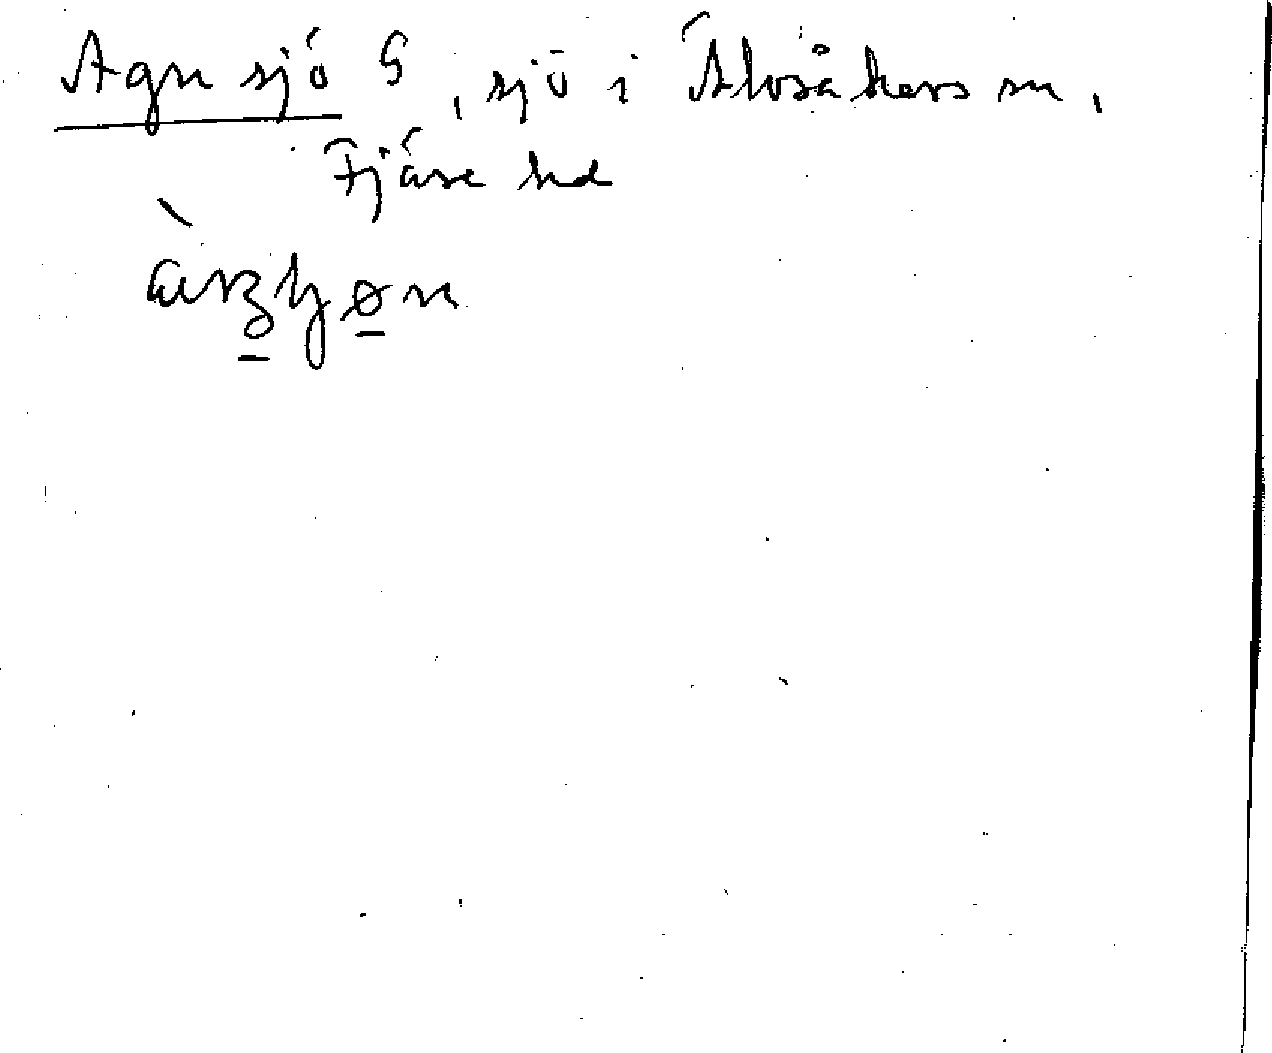 Agnsjö S, sjö i Älvsåkers sn,
Fjäre hd